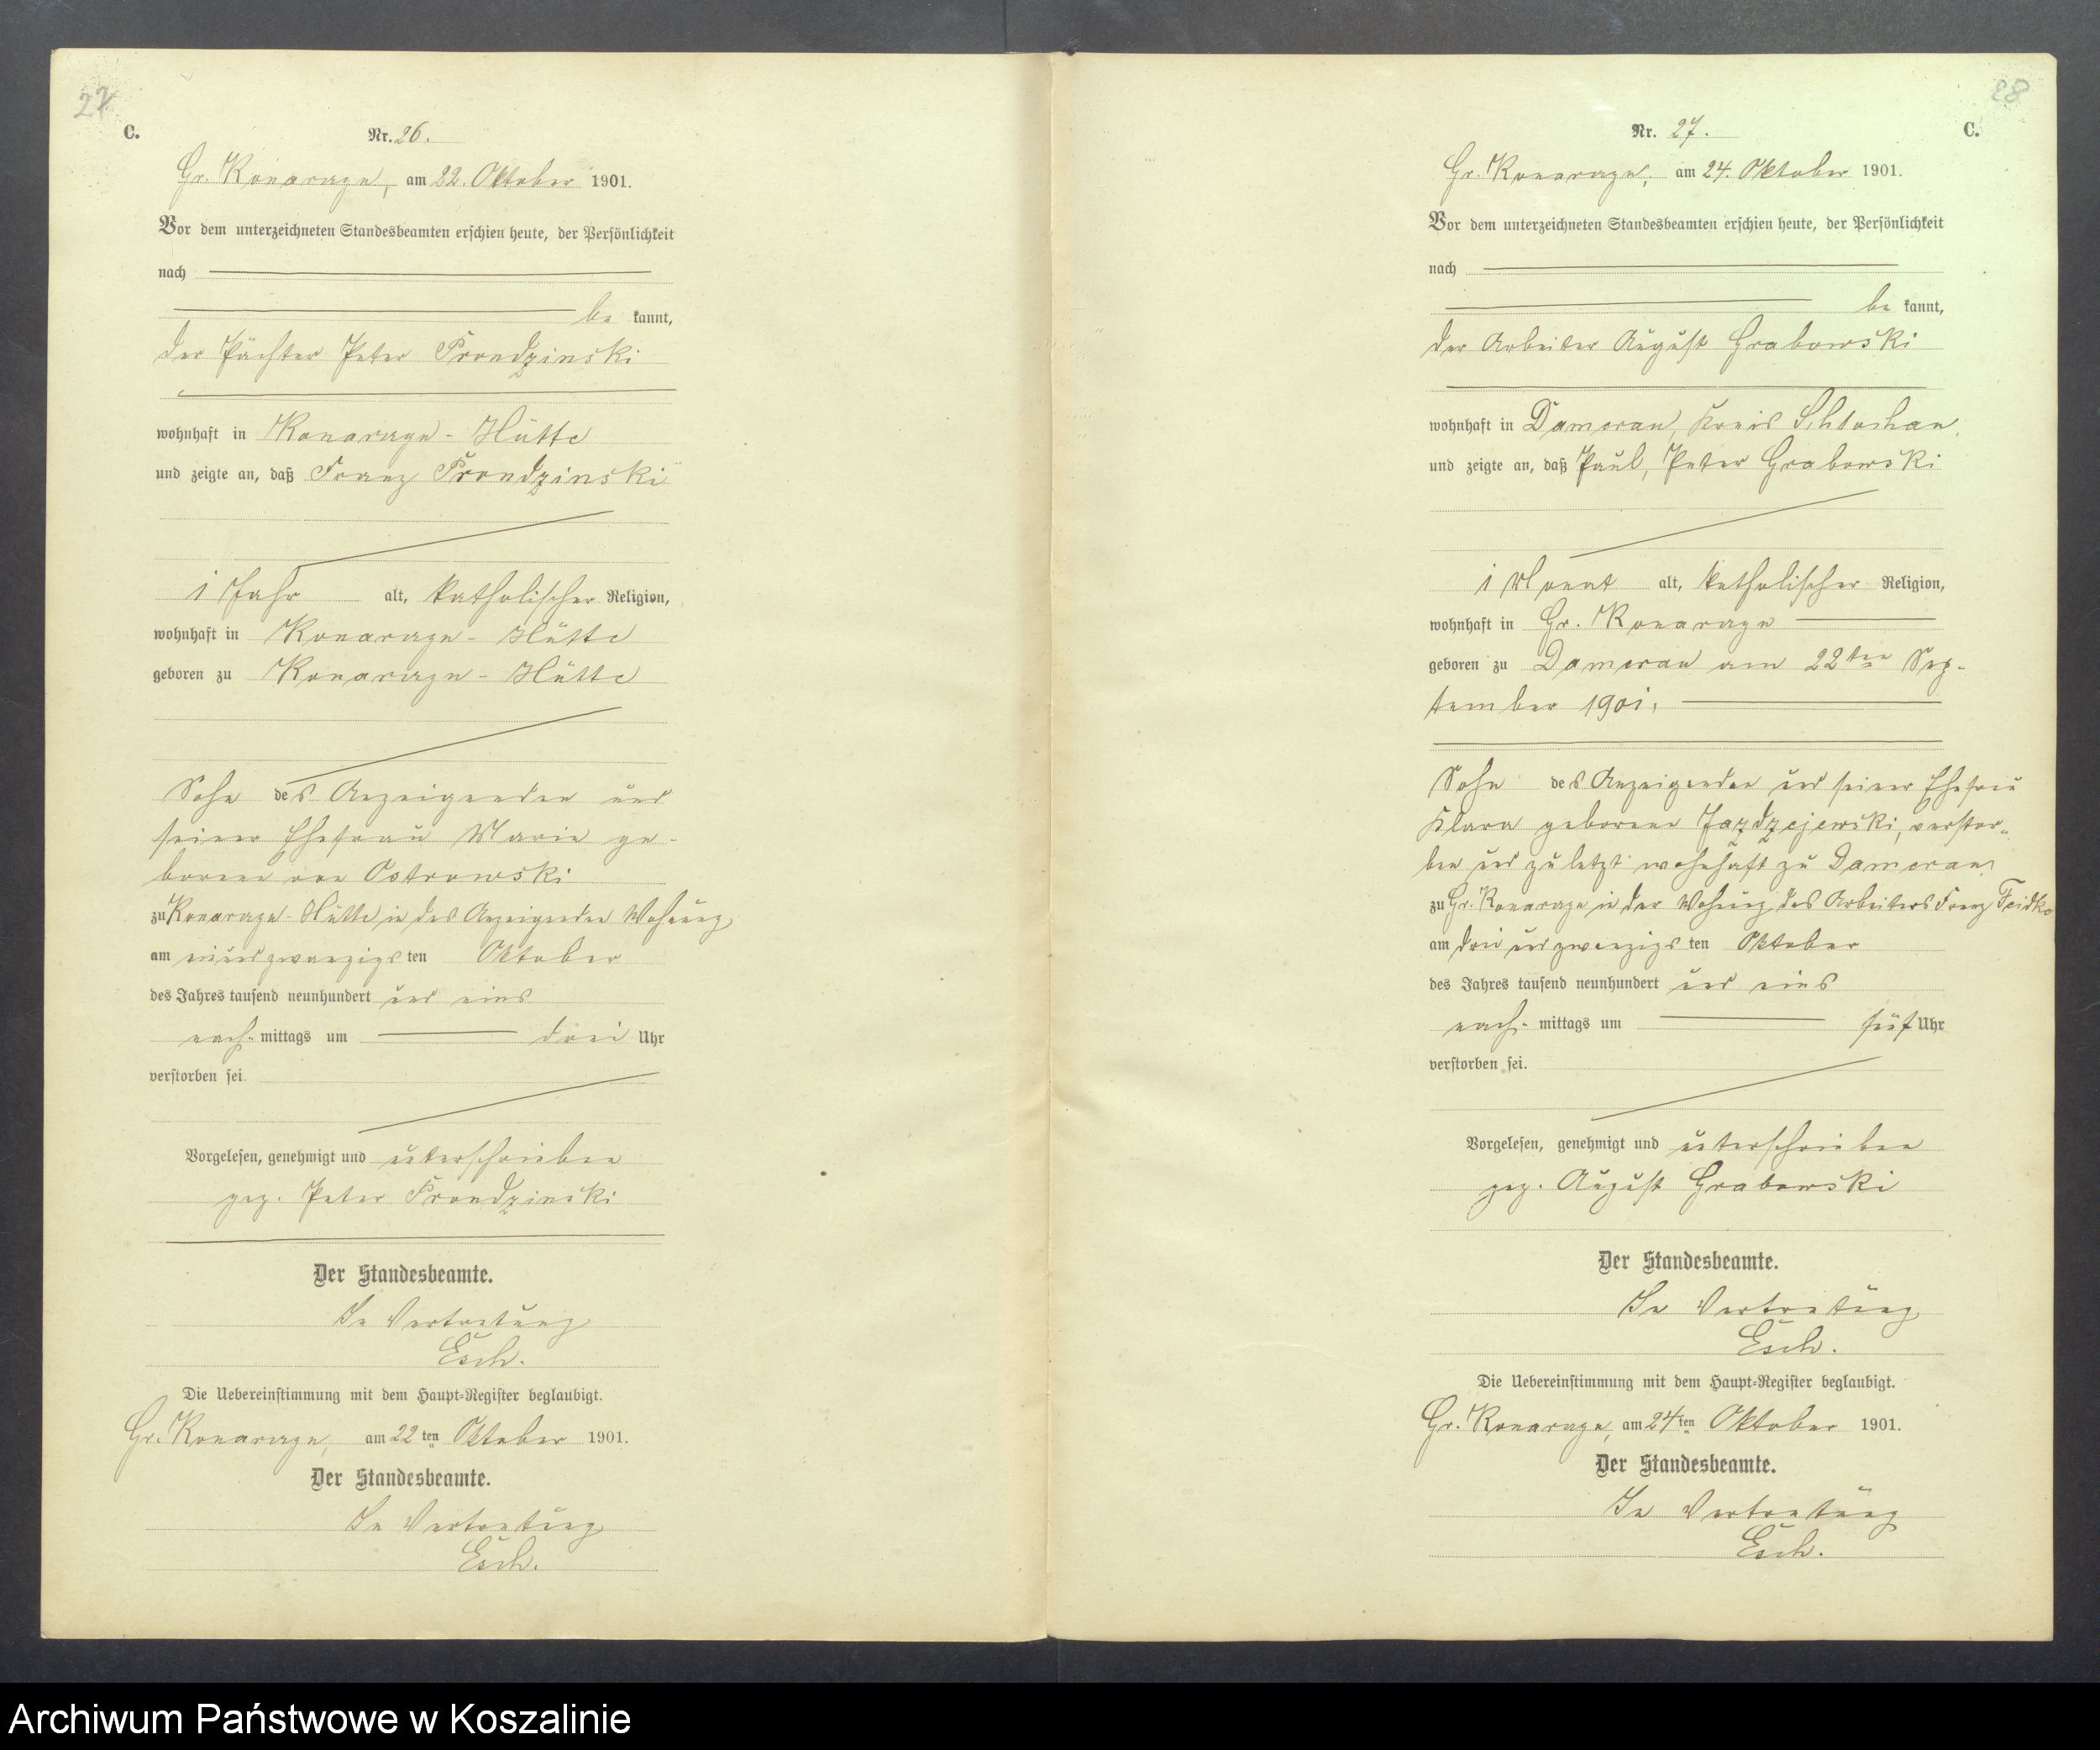 27
C.
Nr. 26.
Gr. Konarzyn, am 22. Oktober 1901.
Vor dem unterzeichneten Standesbeamten erschien heute, der Persönlichkeit
nach
be kannt,
der Pächter Peter Prondzinski
wohnhaft in Konarzyn - Hütte
und zeigte an, daß Franz Prondzinski
1 Jahr alt, katholischer Religion,
wohnhaft in Konarzyn - Hütte
geboren zu Konarzyn - Hütte
Sohn des Anzeigenden und
seiner Ehefrau Marie ge-
borene von Ostrowski
zu Konarzyn - Hütte in des Anzeigenden Wohnung
am einundzwanzigsten Oktober
des Jahres tausend neunhundert und eins
nach- mittags um drei Uhr
verstorben sei.
Vorgelesen, genehmigt und unterschrieben
gez. Peter Prondzinski
Der Standesbeamte.
In Vertretung
Esch.
Die Uebereinstimmung mit dem Haupt-Register beglaubigt.
Gr. Konarzyn, am 22ten Oktober 1901.
Der Standesbeamte.
In Vertretung
Esch.
28
Nr. 27.
C.
Gr. Konarzyn, am 24. Oktober 1901.
Vor dem unterzeichneten Standesbeamten erschien heute, der Persönlichkeit
nach
be kannt,
der Arbeiter August Grabowski
wohnhaft in Damerau, Kreis Schlochau,
und zeigte an, daß Paul, Peter Grabowski
1 Monat alt, katholischer Religion,
wohnhaft in Gr. Konarzyn
geboren zu Damerau am 22ten Sep-
tember 1901,
Sohn des Anzeigenden und seiner Ehefrau
Klara geborene Jazdzejewski, verstor-
ben und zuletzt wohnhaft zu Damerau,
zu Gr. Konarzyn in der Wohnung des Arbeiters Franz
am drei und zwanzigsten Oktober
des Jahres tausend neunhundert und eins
nach- mittags um fünf Uhr
verstorben sei.
Vorgelesen, genehmigt und unterschrieben
gez. August Grabowski
Der Standesbeamte.
In Vertretung
Esch.
Die Uebereinstimmung mit dem Haupt-Register beglaubigt.
Gr. Konarzyn, am 24ten Oktober 1901.
Der Standesbeamte.
In Vertretung
Esch.
Archiwum Państwowe w Koszalinie